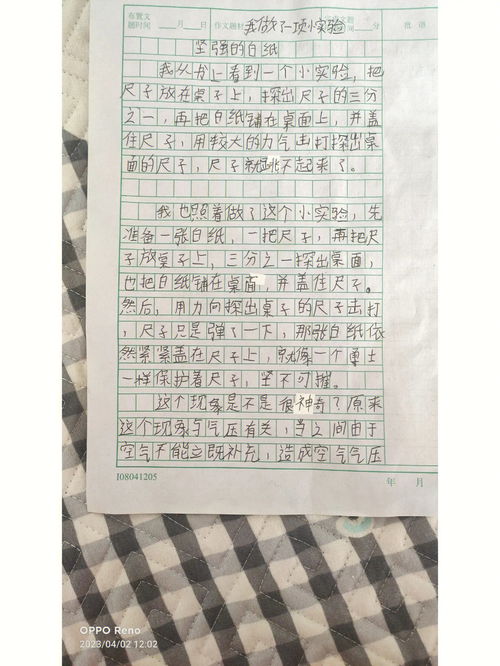 布置文题时间 月 日 作文题材 我做了一项小实验 分 批语
坚强的白纸
我从书上看到一个小实验，把
尺子放在桌子上，探出尺子的三分
之一，再把白纸铺在桌面上，并盖
住尺子，用较大的力气击打探出桌
面的尺子，尺子就跳不起来了。
我也照着做了这个小实验，先
准备一张白纸，一把尺子，再把尺
子放桌子上，三分之一探出桌面，
也把白纸铺在桌面，并盖住尺子。
然后，用力向探出桌子的尺子击打
，尺子只是弹了一下，那张白纸依
然紧紧盖在尺子上，就像一个勇士
一样保护着尺子，坚不可摧。
这个现象是不是很神奇？原来
这个现象与气压有关，当之间由于
空气不能立既补充，造成空气气压
I08041205 年 月
OPPO Reno
2023/04/02 12:02